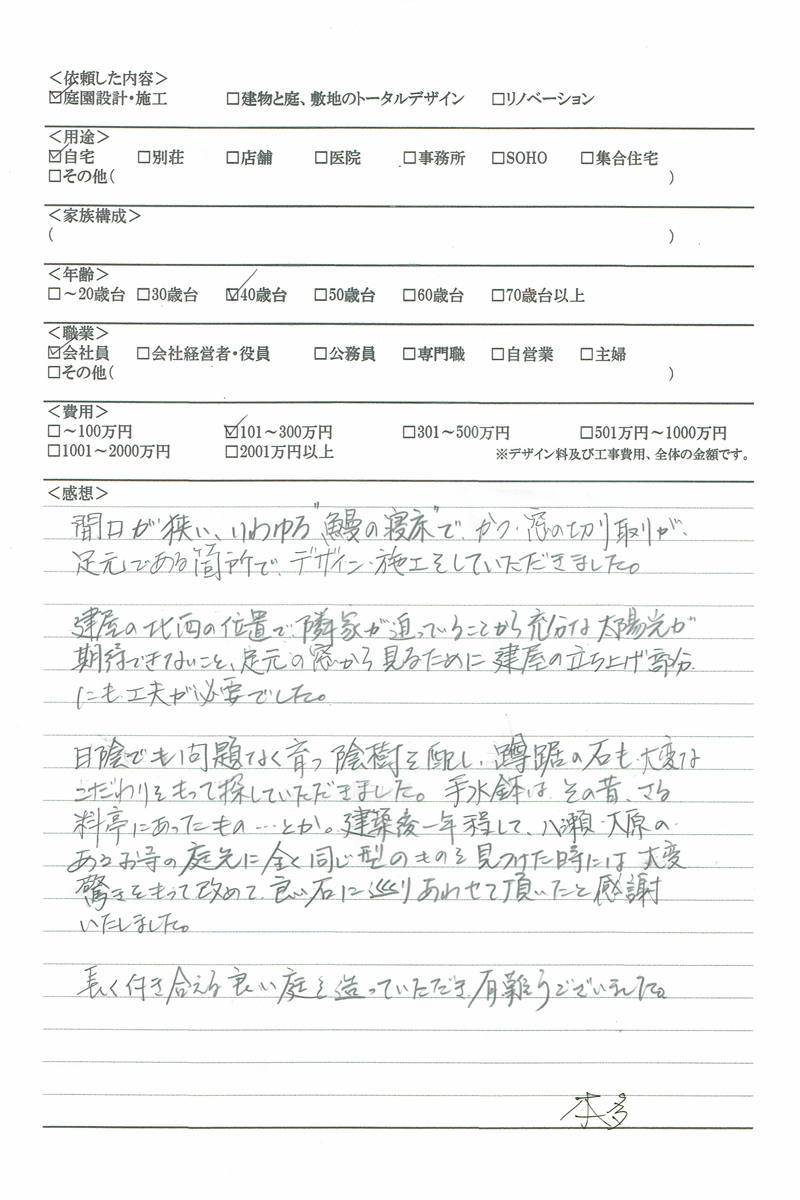 <依頼した内容>
☑庭園設計・施工 □建物と庭、敷地のトータルデザイン □リノベーション
<用途>
☑自宅 □別荘 □店舗 □医院 □事務所 □SOHO □集合住宅
□その他( )
<家族構成>
( )
<年齢>
□～20歳台 □30歳台 ☑40歳台 □50歳台 □60歳台 □70歳台以上
<職業>
☑会社員 □会社経営者・役員 □公務員 □専門職 □自営業 □主婦
□その他( )
<費用>
□～100万円 ☑101～300万円 □301～500万円 □501万円～1000万円
□1001～2000万円 □2001万円以上 ※デザイン料及び工事費用、全体の金額です。
<感想>
間口が狭い、いわゆる"鰻の寝床"で、かつ、窓の切り取りが、
足元である箇所で、デザイン・施工をしていただきました。
建屋の北西の位置で、隣家が迫っていることから充分な太陽光が
期待できないこと、足元の窓から見るために建屋の立ち上げ部分
にも工夫が必要でした。
日陰でも問題なく育つ陰樹を配し、蹲踞の石も、大変な
こだわりをもって探していただきました。手水鉢は、その昔、さる
料亭にあったもの…とか。建築後一年程して、八瀬・大原の
あるお寺の庭先に全く同じ型のものを見つけた時には、大変
驚きをもって改めて、良い石に巡りあわせて頂いたと感謝
いたしました。
長く付き合える良い庭を造っていただき、有難うございました。
本多